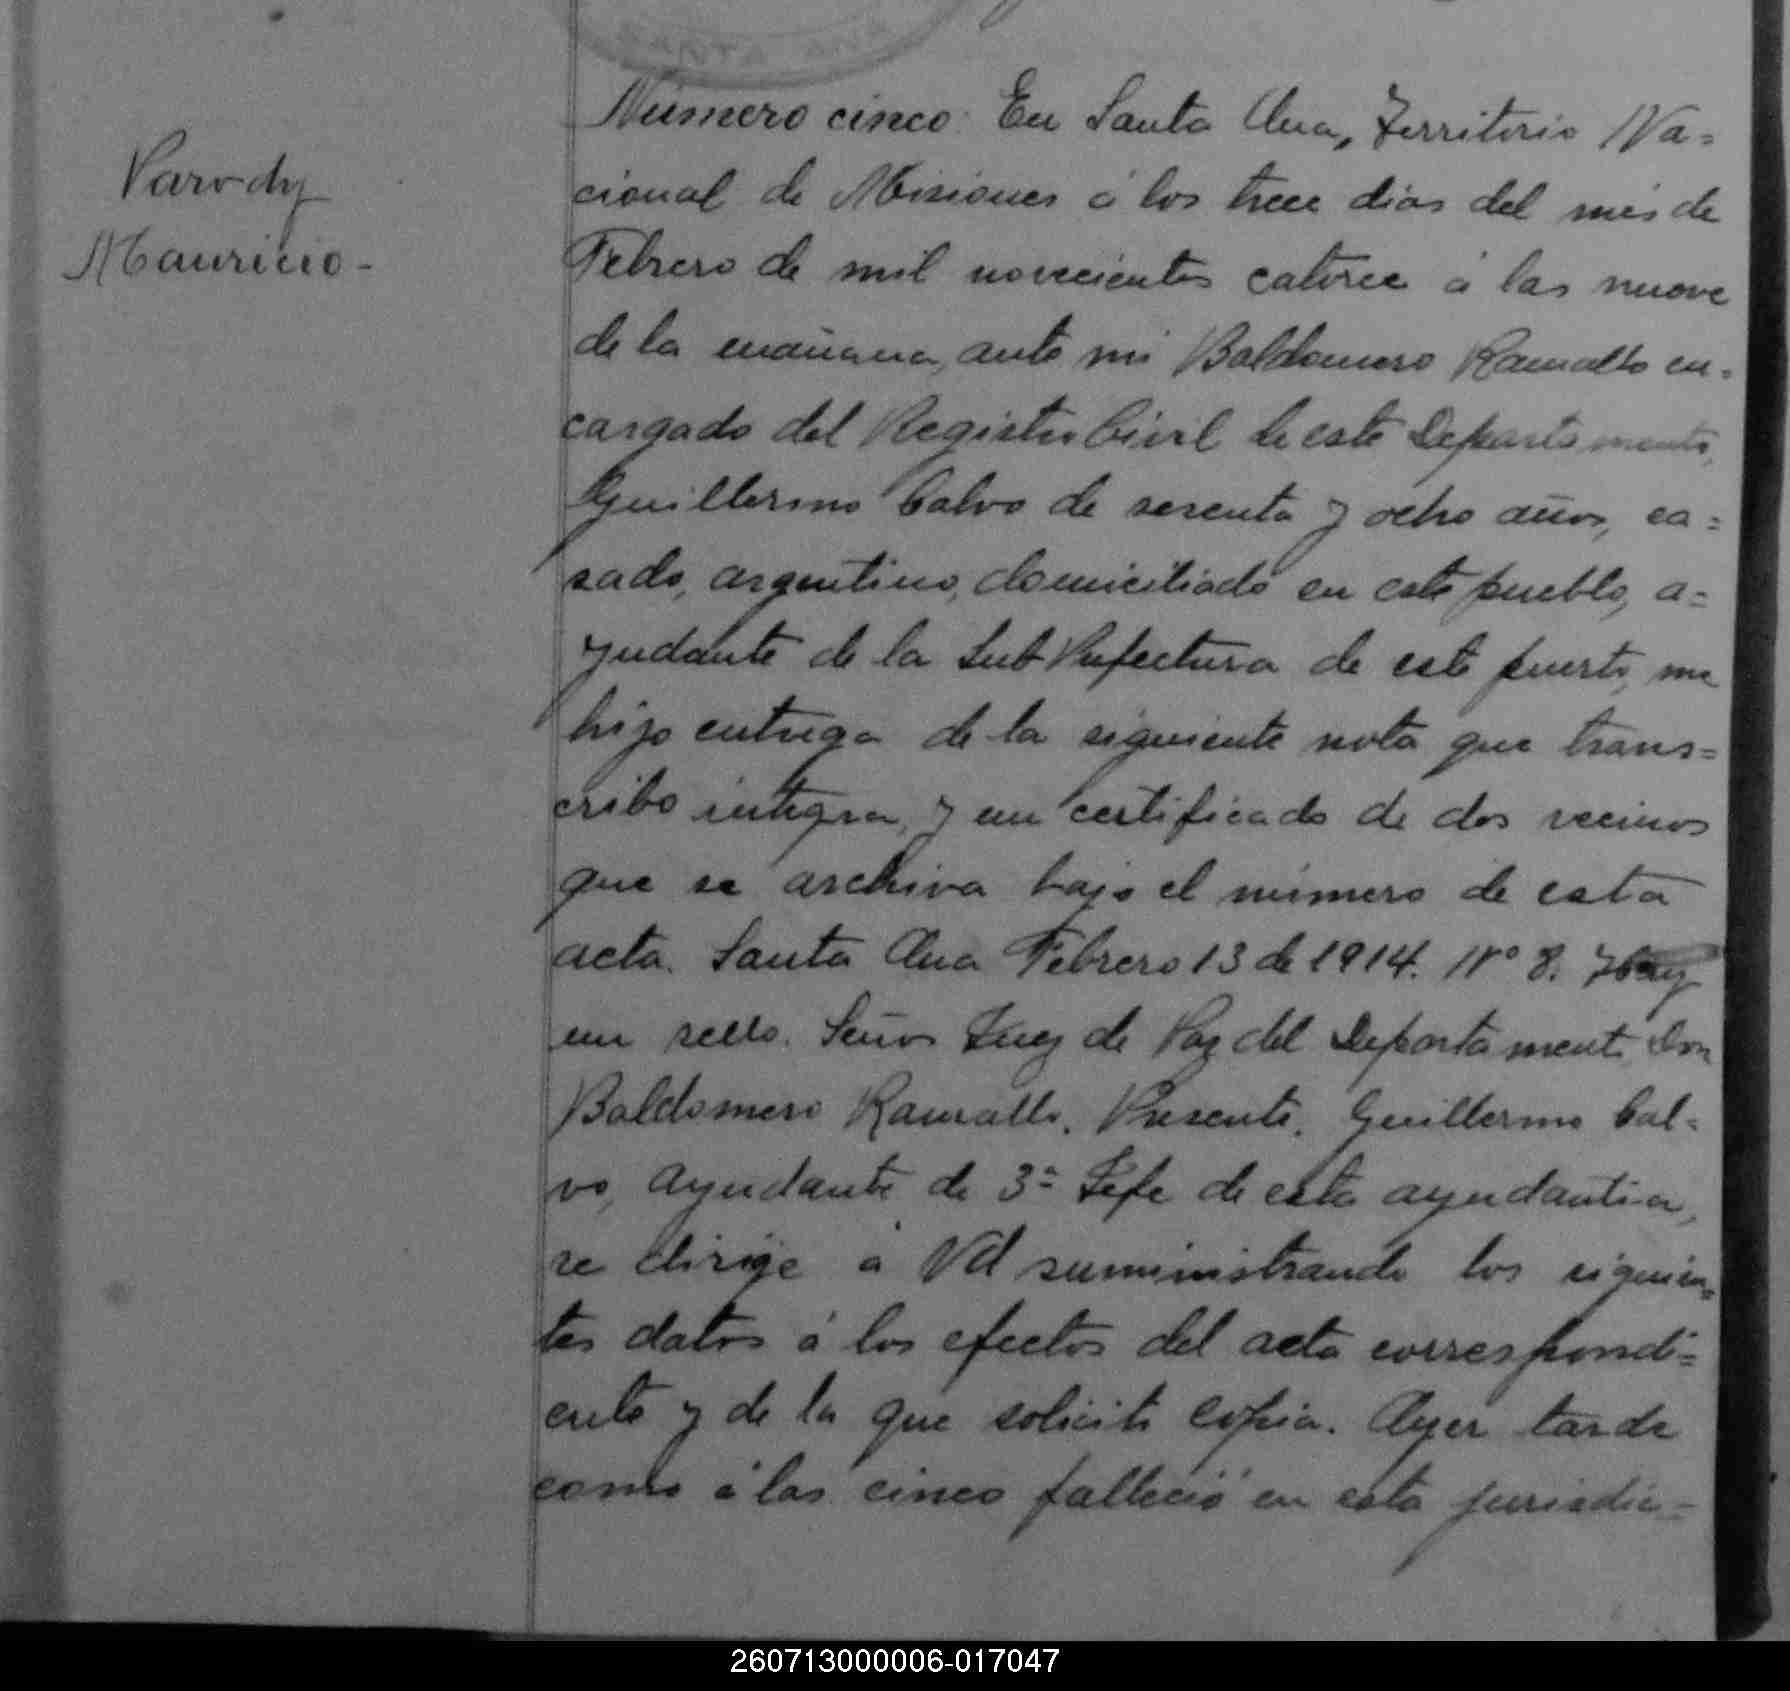 Parody
Mauricio -
Número cinco: En Santa Ana, Territorio Na=
cional de Misiones á los trece dias del mes de
Febrero de mil novecientos catorce á las nueve
de la mañana, ante mi Baldomero Ramallo en=
cargado del Registro Civil de este Departamento,
Guillermo Calvo de sesenta y ocho años, ca=
sado, argentino, domiciliado en este pueblo, a=
yudante de la Sub Prefectura de este puerto, me
hizo entrega de la siguiente nota que trans=
cribo integra, y un certificado de dos vecinos
que se archiva bajo el número de esta
acta. Santa Ana Febrero 13 de 1914. Nº 8. Hay
un sello. Señor Juez de Paz del Departamento Don
Baldomero Ramallo. Presente. Guillermo Cal=
vo, ayudante de 3ª Jefe de esta ayudantia,
se dirige á Vd suministrando los siguien=
tes datos á los efectos del acta correspondi=
ente y de la que solicito copia. Ayer tarde
como á las cinco falleció en esta jurisdic=
260713000006-017047